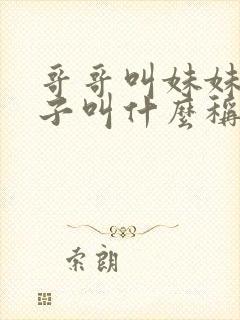 哥哥叫妹妹
子叫什麼稱
索朗